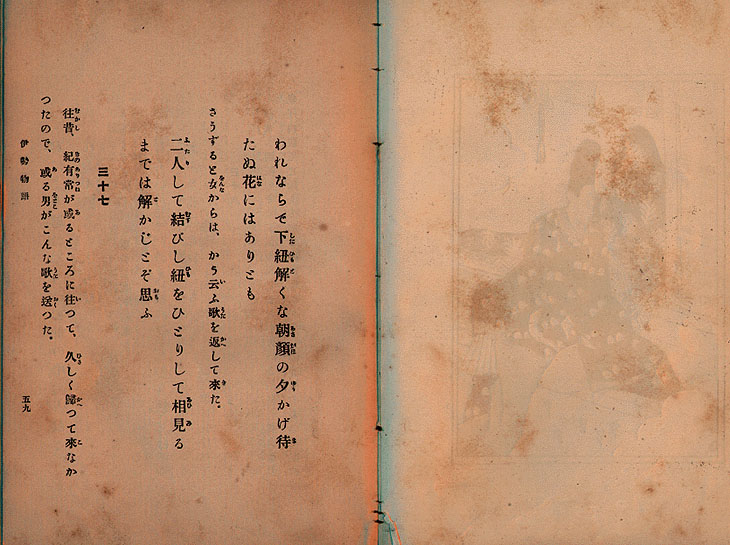 われならで下紐解くな朝顔の夕かげ待
たぬ花にはありとも
さうすると女からは、かう云ふ歌を返して來た。
二人して結びし紐をひとりして相見る
までは解かじとぞ思ふ
三十七
往昔、紀有常が或るところに往つて、久しく歸つて來なか
つたので、或る男がこんな歌を送つた。
伊勢物語
五九